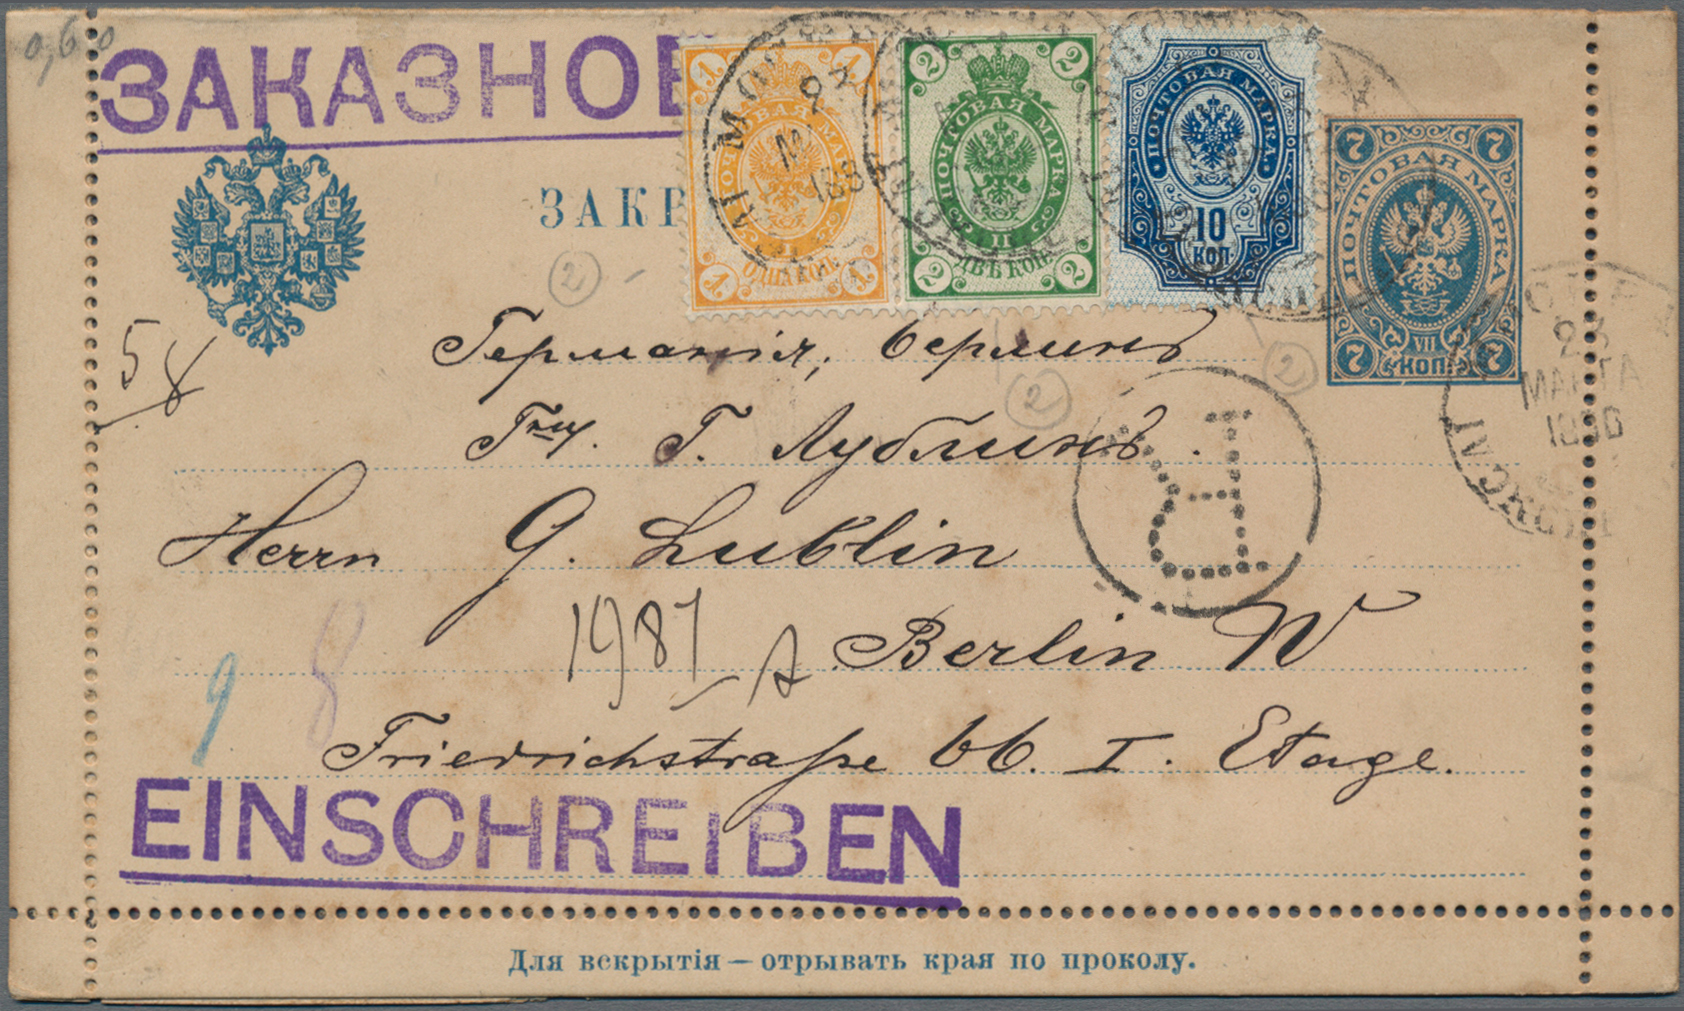 0,60
ЗАКАЗНО
ЗАКР
1 1
ПОЧТОВАЯ МАРКА
I
ОДНА КОП.
1 1
2 2
ПОЧТОВАЯ МАРКА
II
ДВѢ КОП.
2 2
ПОЧТОВАЯ МАРКА
10
КОП.
7 7
ПОЧТОВАЯ МАРКА
VII
7 КОП. 7
23
МАРТА
1890
2
2
2
58
Германія, Берлинъ
Гну. Г. Лублинъ.
R
Herrn G. Lublin
1987
Berlin W
9 8
Friedrichstraße 66. I. Etage.
EINSCHREIBEN
Для вскрытія — отрывать края по проколу.